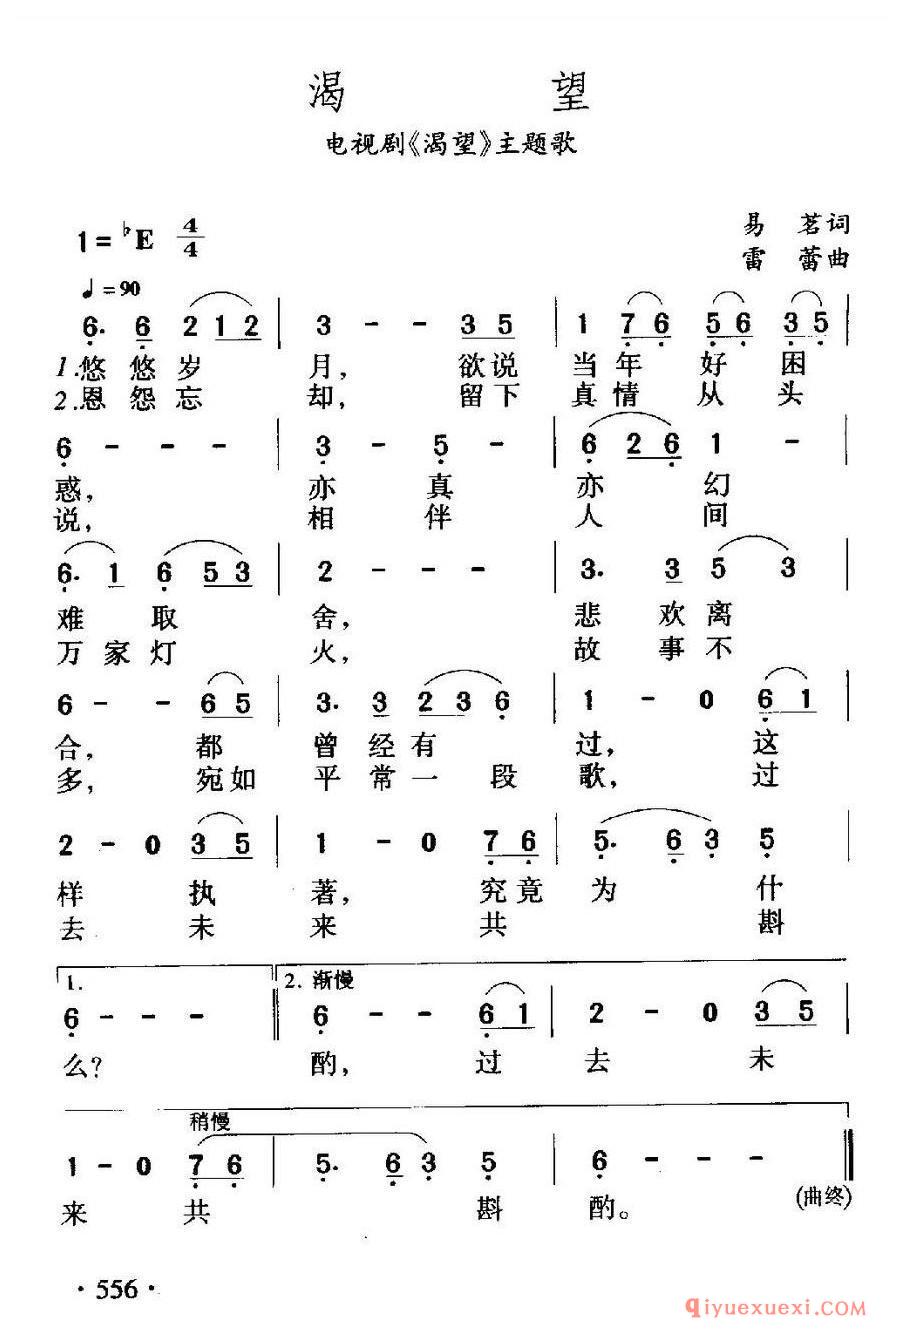 渴 望
电视剧《渴望》主题歌
1=♭E 4/4
易 茗词
雷 蕾曲
♩=90
6. 6 2 1 2 | 3 - - 3 5 | 1 7 6 5 6 3 5 |
1.悠 悠 岁 月, 欲 说 当 年 好 困
2.恩 怨 忘 却, 留 下 真 情 从 头
6 - - - | 3 - 5 - | 6 2 6 1 - |
惑, 亦 真 亦 幻
说, 相 伴 人 间
6. 1 6 5 3 | 2 - - - | 3. 3 5 3 |
难 取 舍, 悲 欢 离
万 家 灯 火, 故 事 不
6 - - 6 5 | 3. 3 2 3 6 | 1 - 0 6 1 |
合, 都 曾 经 有 过, 这
多, 宛 如 平 常 一 段 歌, 过
2 - 0 3 5 | 1 - 0 7 6 | 5. 6 3 5 |
样 执 著, 究 竟 为 什
去 未 来 共 斟
1. 2. 渐慢
6 - - - 6 - - 6 1 | 2 - 0 3 5 |
么? 酌, 过 去 未
稍慢
1 - 0 7 6 | 5. 6 3 5 | 6 - - -
来 共 斟 酌。 (曲终)
· 556 ·
qiyuexuexi.com